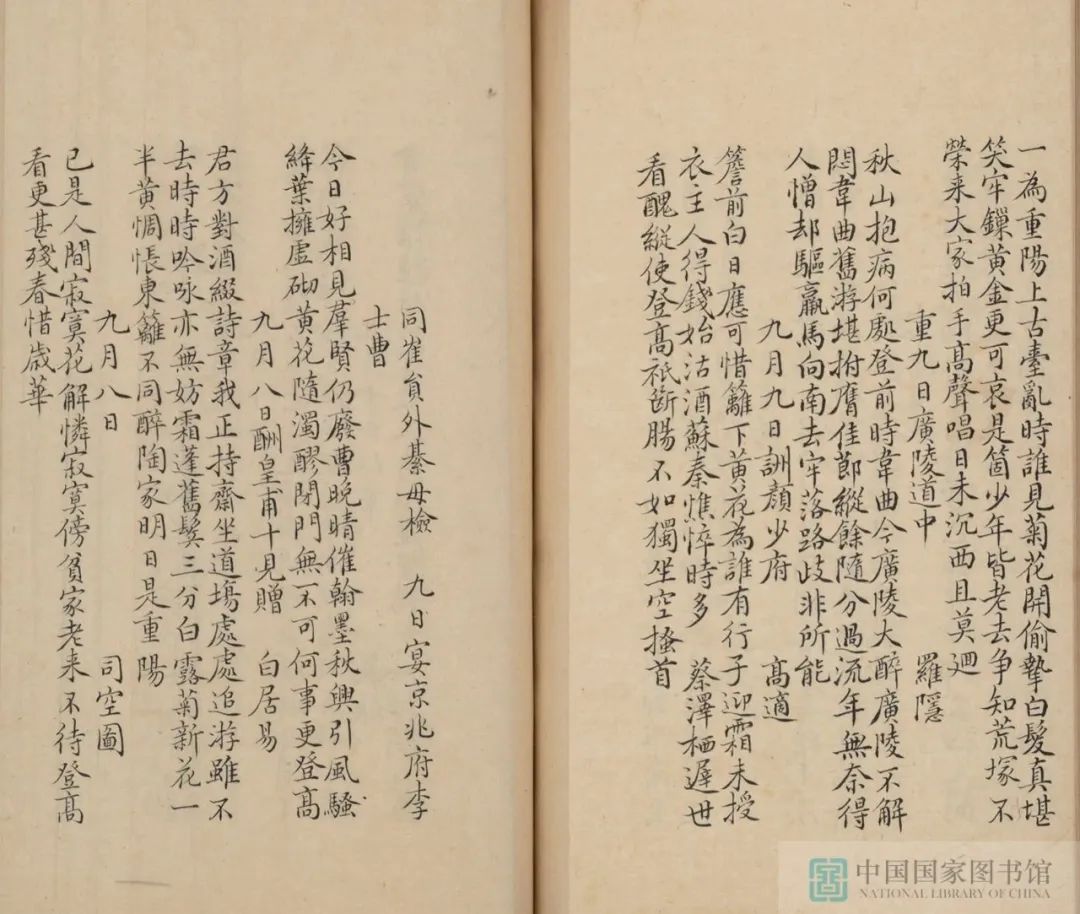 一為重陽上古臺亂時誰見菊花開偷摯白髮真堪
笑牢鏁黄金更可哀是箇少年皆老去争知荒塚不
榮来大家拍手髙聲唱日未沉西且莫廻
重九日廣陵道中　羅隱
秋山抱病何處登前時韋曲今廣陵大醉廣陵不解
悶韋曲舊游堪拊膺佳節縱餘隨分過流年無奈得
人憎却驅羸馬向南去牢落路歧非所能
九月九日詶顔少府　髙適
簷前白日應可惜籬下黄花為誰有行子迎霜未授
衣主人得錢始沽酒蘇秦憔悴時多　蔡澤栖遲世
看醜縱使登髙祇斷腸不如獨坐空搔首
同崔貟外綦毋檢　九日宴京兆府李
士曹
今日好相見羣賢仍廢曹晚晴催翰墨秋興引風騷
絳葉擁虛砌黄花隨濁醪閉門無不可何事更登髙
九月八日酬皇甫十見贈　白居易
君方對酒綴詩章我正持齋坐道塲處處追游雖不
去時時吟咏亦無妨霜蓬舊鬓三分白露菊新花一
半黄惆悵東籬不同醉陶家明日是重陽
九月八日　司空圖
已是人間寂寞花解憐寂寞傍貧家老来不待登髙
看更甚殘春惜歲華
中国国家图书馆
NATIONAL LIBRARY OF CHINA